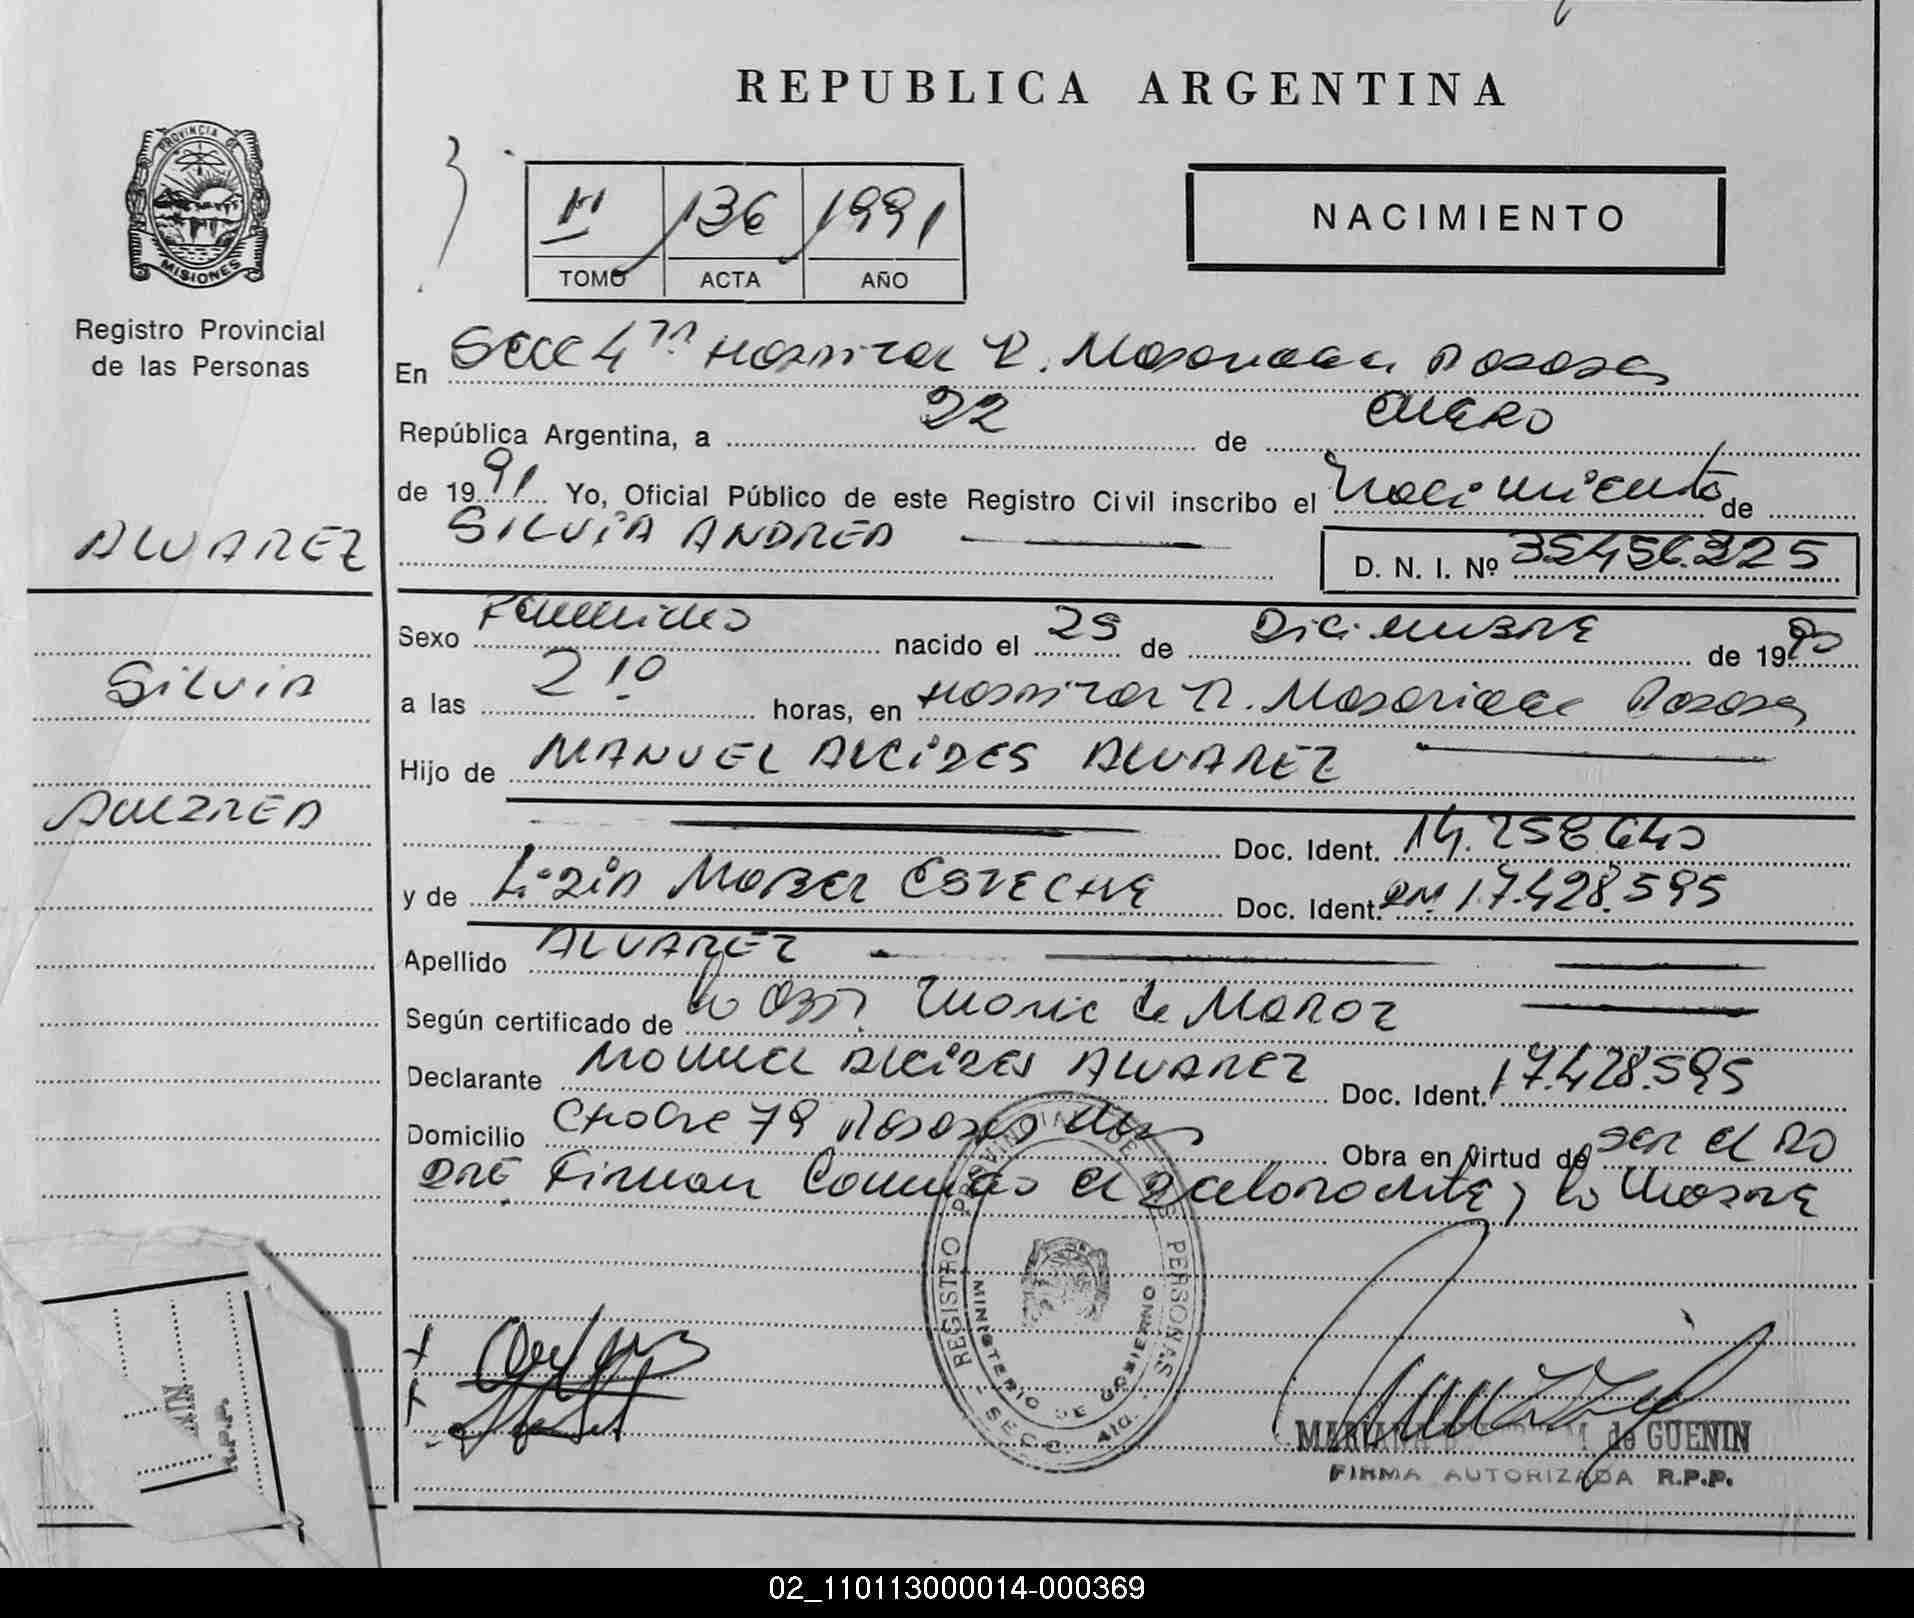 REPUBLICA ARGENTINA
PROVINCIA DE
MISIONES
Registro Provincial
de las Personas
II 136 1991
TOMO ACTA AÑO
NACIMIENTO
En Secc 4ta Hospital R. Madariaga Posadas
República Argentina, a 22 de enero
de 1991 Yo, Oficial Público de este Registro Civil inscribo el Nacimiento de
SILVIA ANDREA D. N. I. Nº 35.456.325
ALVAREZ
Silvia
Andrea
Sexo Femenino nacido el 29 de Diciembre de 1990
a las 2 10 horas, en Hospital R. Madariaga Posadas
Hijo de MANUEL ALCIDES ALVAREZ
Doc. Ident. 14.258.640
y de Lidia Mabel ESTECHE Doc. Ident. DNI 17.428.595
Apellido ALVAREZ
Según certificado de la Obst. Maria de Maroz
Declarante Manuel Alcides ALVAREZ Doc. Ident. 17.428.595
Domicilio 79 Posadas Mnes Obra en Virtud de ser el pa
dre Firman Conmigo el declarante y la madre
REGISTRO PROVINCIAL DE LAS PERSONAS
MINISTERIO DE GOBIERNO
SECC. 4ta.
MARIANA de GUENIN
FIRMA AUTORIZADA R.P.P.
R.P.P.
02_110113000014-000369